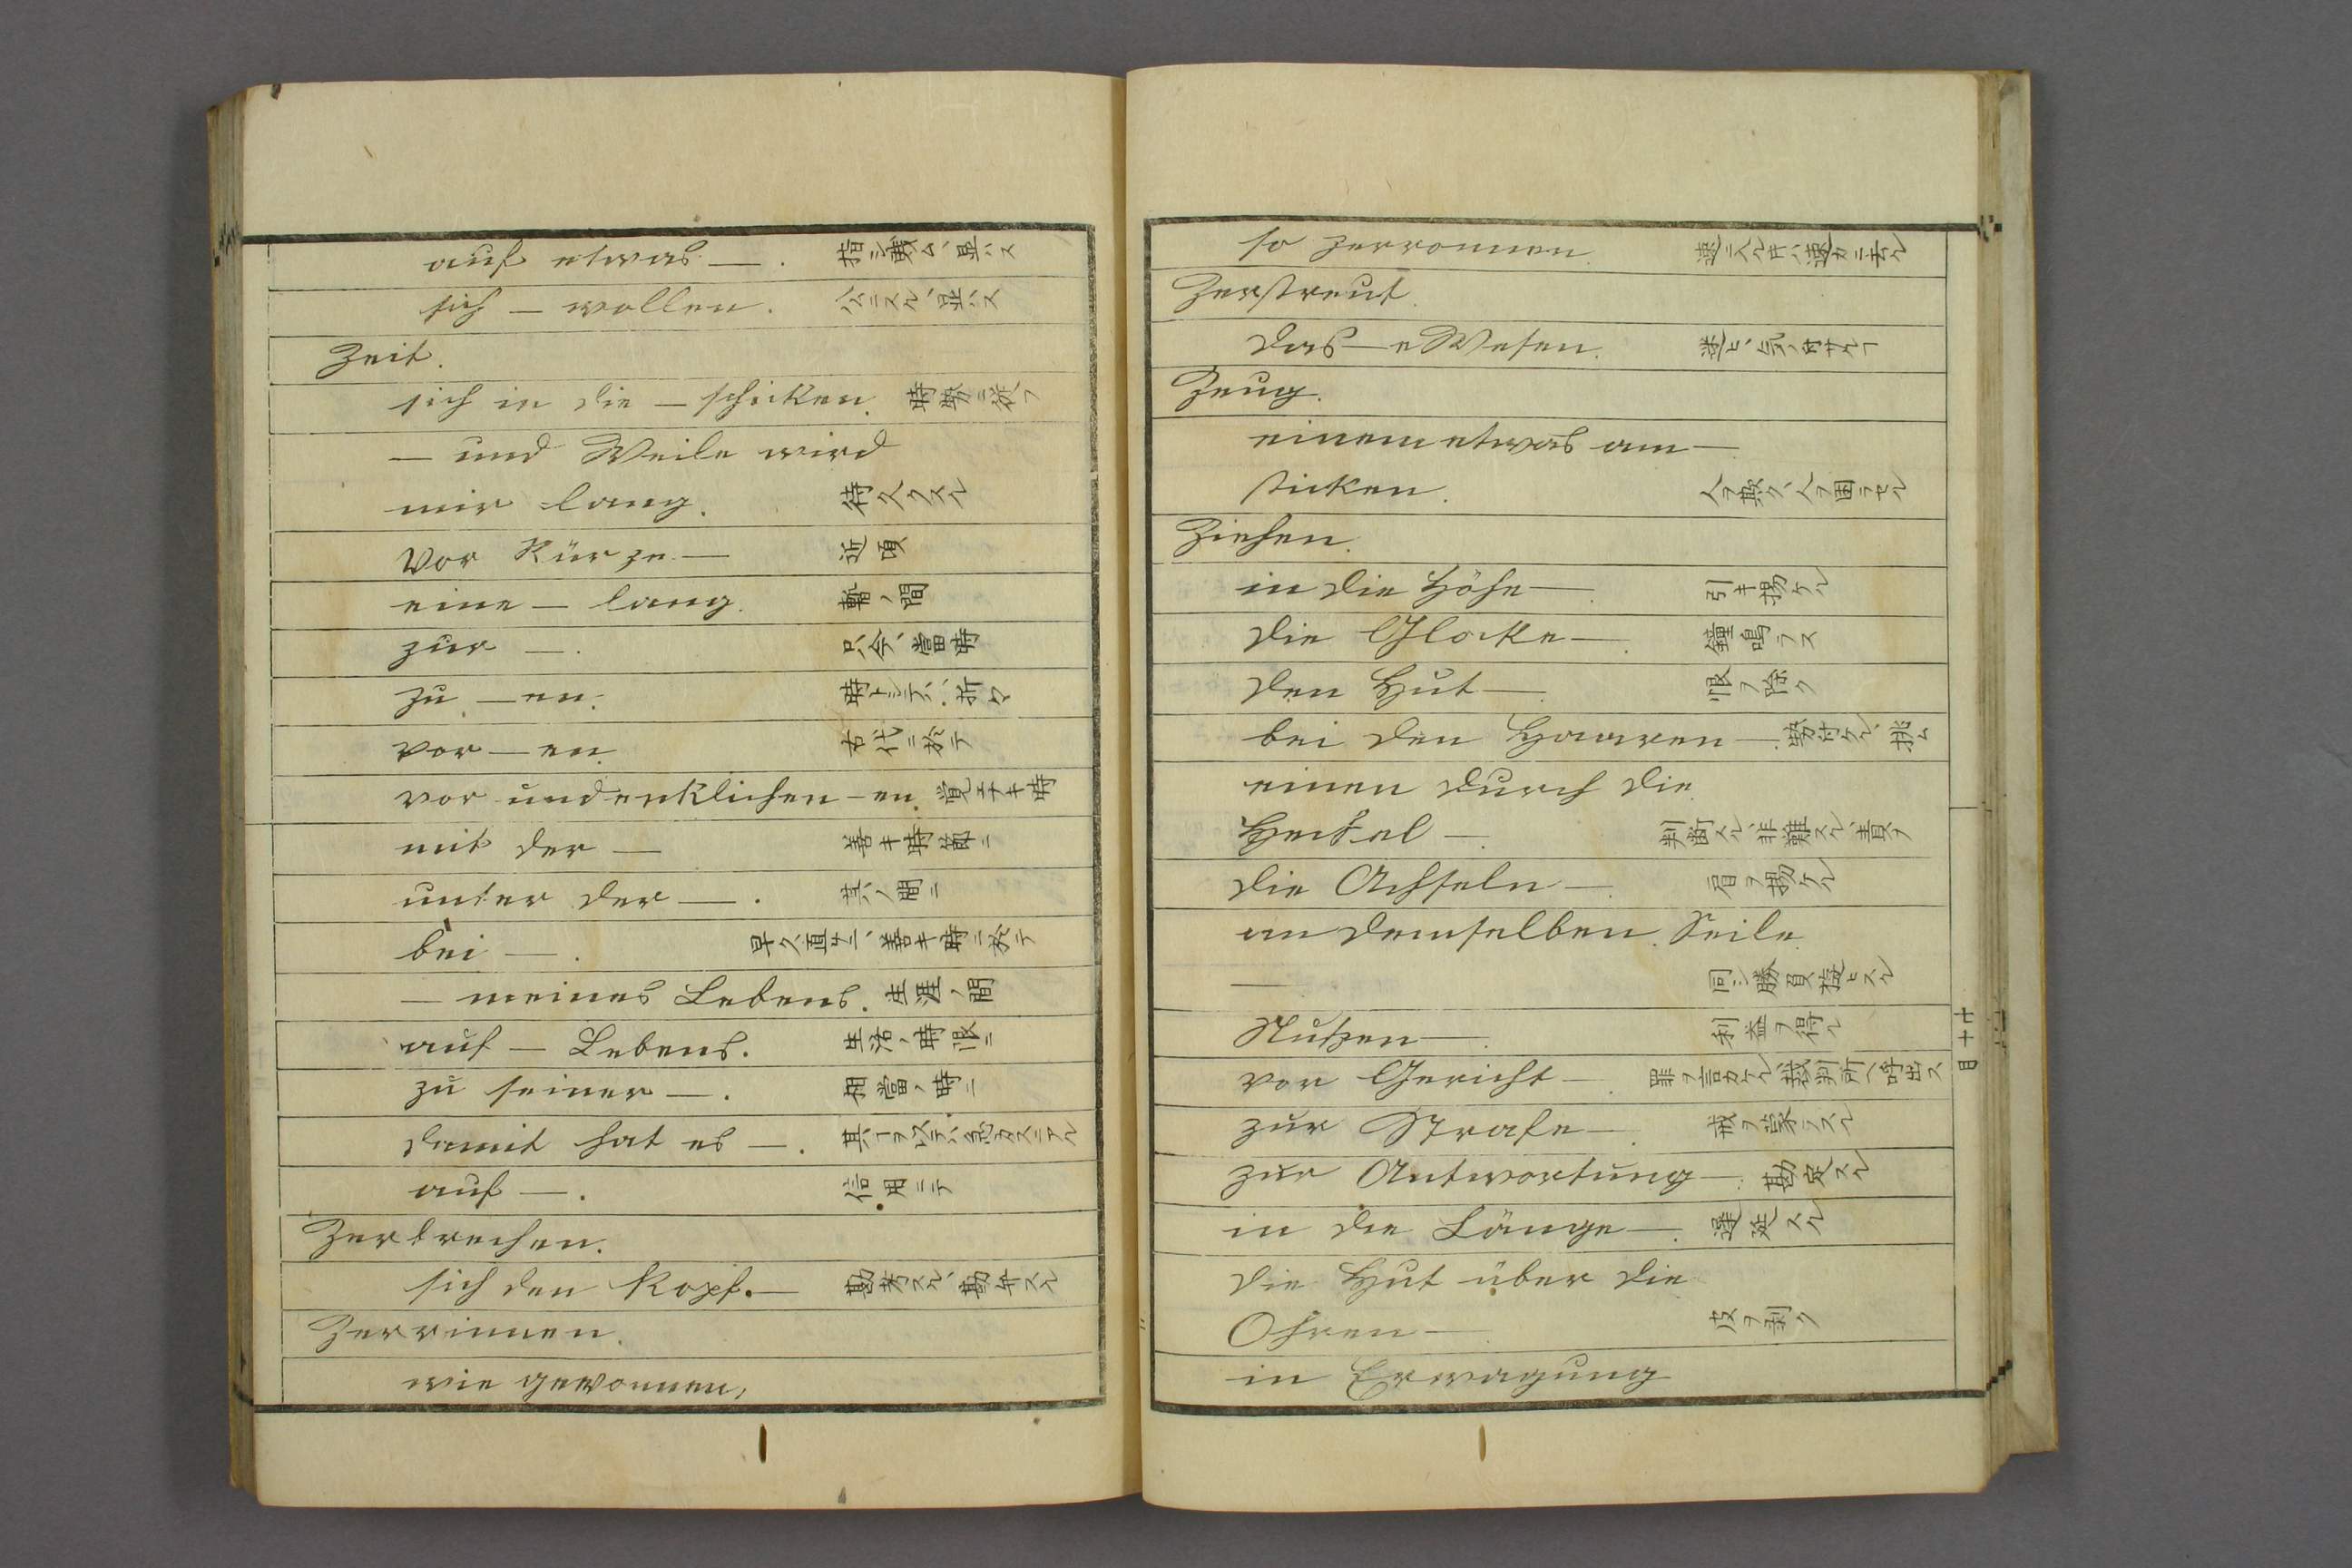 auf etwas —.
sich — wollen.
Zeit.
sich in die — schicken. 時勢ニ従フ
— und Weile wird
mir lang. 待久クスル
Vor Kürze — 近頃
eine — lang. 暫ノ間
zur —. 只今、當時
zu — en.
vor — en. 古代ニ於テ
vor undenklichen — en.
mit der — 善キ時節ニ
unter der —. 其ノ間ニ
bei —.
— meines Lebens. 生涯ノ間
auf — Lebens. 生活ノ時限ニ
zu seiner —. 相當ノ時ニ
damit hat es —.
auf —. 信用ニテ
Zerbrechen.
sich den Kopf. — 勘考スル、勘弁スル
Zerrinnen.
wie gewonnen,
so zerronnen.
Zerstreut.
das — e Wesen.
Zeug.
einem etwas am —
flicken.
Ziehen.
in die Höhe —. 引キ揚ケル
die Glocke —. 鐘鳴ラス
den Hut — ヲ除ク
bei den Haaren —.
einen durch die
Hechel —. 判断スル、非難スル、責フ
die Achseln — 肩ヲ揚ケル
an demselben Seile
—
Nutzen —. 利益ヲ得ル
vor Gericht —. 裁判所ヘ呼出ス
zur Strafe —.
zur Antwortung —. 勘定スル
in die Länge —. 遅延スル
die Hut über die
Ohren — 皮ヲ剥ク
in Erwagung